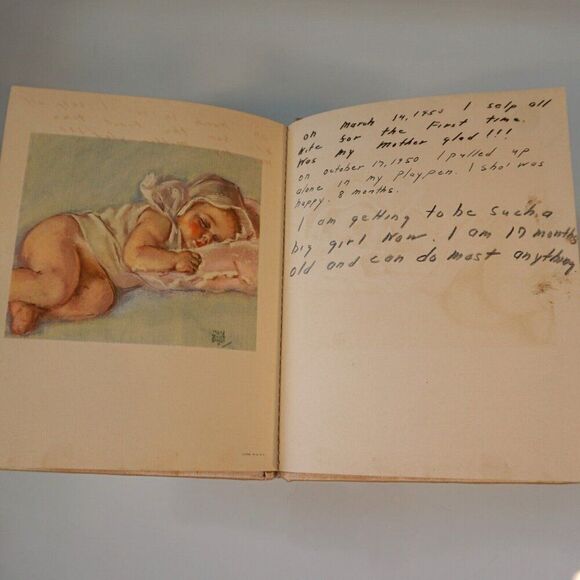 on March 14, 1950 I selp all
nite for the First time.
Was my Mother glad!!!
on october 17, 1950 I pulled up
alone in my playpen. I sho' was
happy. 8 months.
I am getting to be such a
big girl now. I am 17 months
old and can do most anything